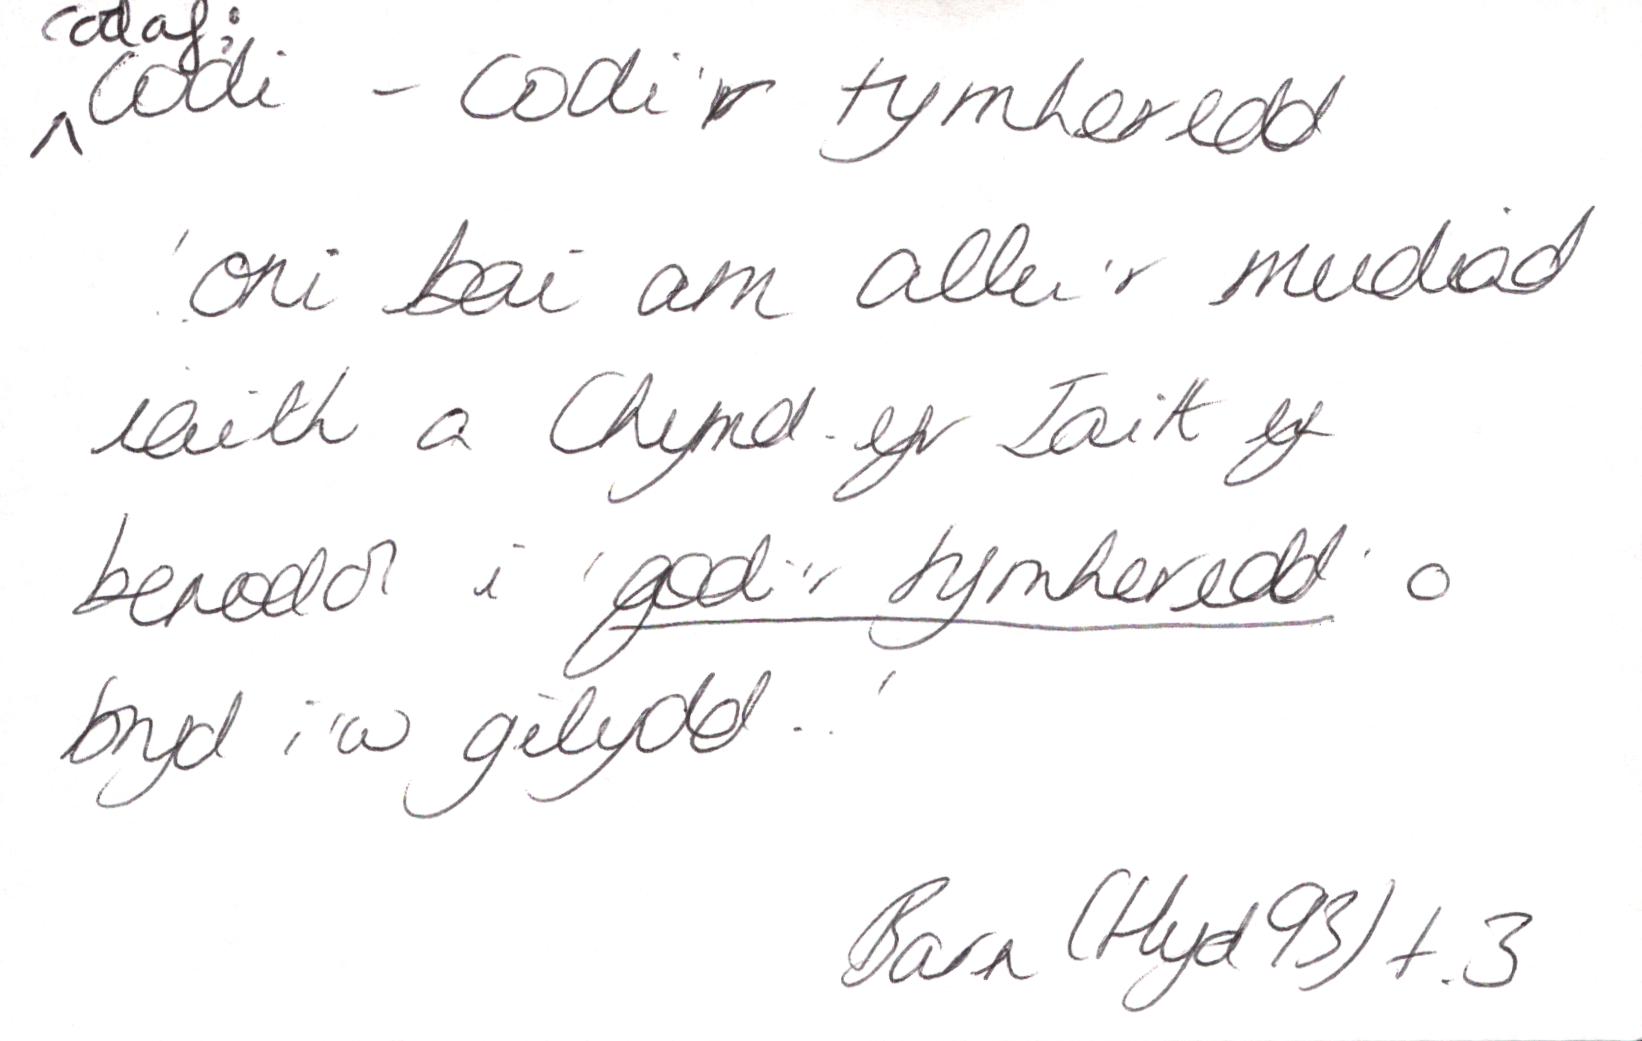 codaf:
codi - codi'r tymheredd
'oni bai am allu'r mudiad
iaith a Chymd. yr Iaith yn
benodol i 'godi'r tymheredd' o
bryd i'w gilydd..'
Barn (Hyd 93) t.3